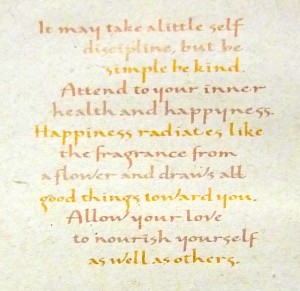 It may take alittle self
discipline, but be
simple be kind.
Attend to your inner
health and happyness.
Happiness radiates like
the fragrance from
a flower and draws all
good things toward you.
Allow your love
to nourish yourself
as well as others.